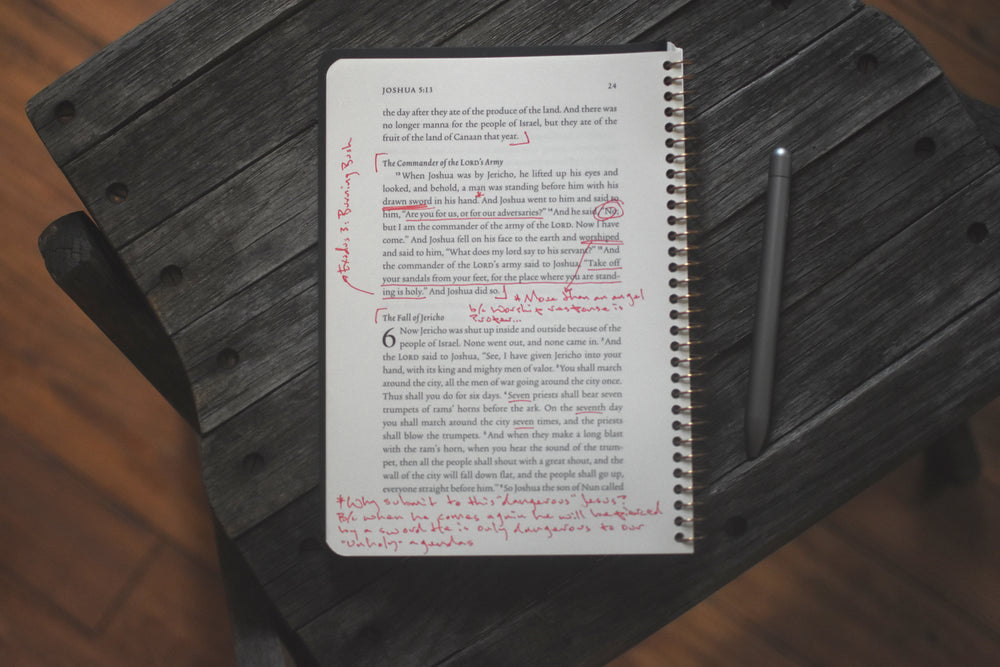 JOSHUA 5:13
24
the day after they ate of the produce of the land. And there was
no longer manna for the people of Israel, but they ate of the
fruit of the land of Canaan that year.
The Commander of the LORD's Army
13 When Joshua was by Jericho, he lifted up his eyes and
looked, and behold, a man was standing before him with his
drawn sword in his hand. And Joshua went to him and said to
him, "Are you for us, or for our adversaries?" 14 And he said, "No;
but I am the commander of the army of the LORD. Now I have
come." And Joshua fell on his face to the earth and worshiped
and said to him, "What does my lord say to his servant?" 15 And
the commander of the LORD's army said to Joshua, "Take off
your sandals from your feet, for the place where you are stand-
ing is holy." And Joshua did so.
*More than an angel
b/c worship response is
proper...
*Exodus 3: Burning Bush
The Fall of Jericho
6 Now Jericho was shut up inside and outside because of the
people of Israel. None went out, and none came in. 2 And
the LORD said to Joshua, "See, I have given Jericho into your
hand, with its king and mighty men of valor. 3 You shall march
around the city, all the men of war going around the city once.
Thus shall you do for six days. 4 Seven priests shall bear seven
trumpets of rams' horns before the ark. On the seventh day
you shall march around the city seven times, and the priests
shall blow the trumpets. 5 And when they make a long blast
with the ram's horn, when you hear the sound of the trum-
pet, then all the people shall shout with a great shout, and the
wall of the city will fall down flat, and the people shall go up,
everyone straight before him." 6 So Joshua the son of Nun called
*Why submit to this "dangerous" Jesus?
B/c when he comes again he will be pierced
by a sword He is only dangerous to our
"unholy" agendas